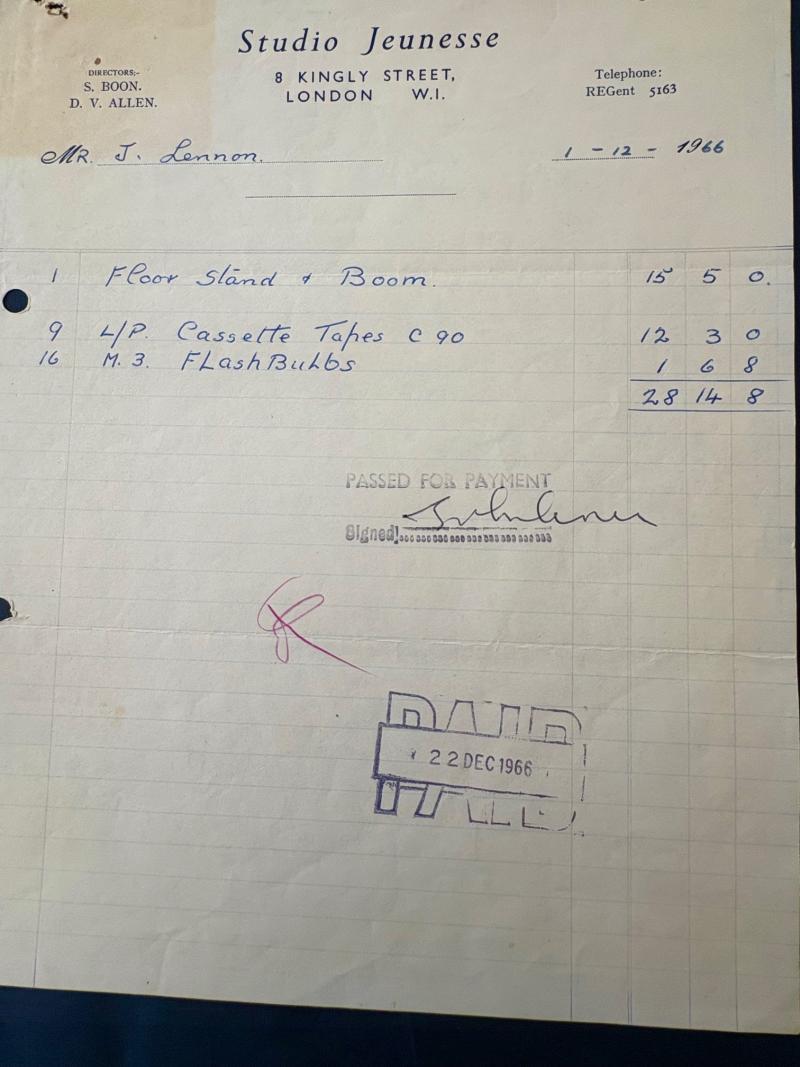 Studio Jeunesse
DIRECTORS:-
S. BOON.
D. V. ALLEN.
8 KINGLY STREET,
LONDON W.I.
Telephone:
REGent 5163
MR. J. Lennon.
1 - 12 - 1966
1 Floor Stand & Boom. 15 5 0.
9 L/P. Cassette Tapes C 90 12 3 0
16 M. 3. FLash BuLbs 1 6 8
28 14 8
PASSED FOR PAYMENT
Signed John Lennon
PAID
22 DEC 1966